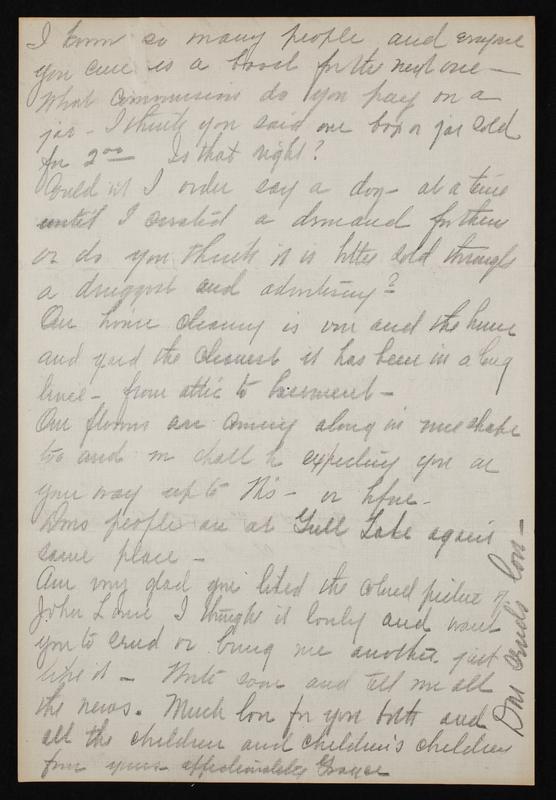 I know so many people and everyone
you cure is a boost for the next one —
What commissions do you pay on a
jar - I think you said one box or jar sold
for 2 00 Is that right?
Could n't I order say a doz - at a time
until I created a demand for them
or do you think it is better sold through
a druggist and advertising?
Our house cleaning is over and the house
and yard the cleanest it has been in a long
time - from attic to basement -
Our flowers are coming along in nice shape
too and we shall be expecting you on
your way up to N's - or before -
Dons people are at Gull Lake again
same place -
Am very glad you liked the colored picture of
John L and I thought it lovely and want
you to send or bring me another just
like it - Write soon and tell me all
the news. Much love for you both and
all the children and children's children
from yours affectionately Grayce
Don sends love -